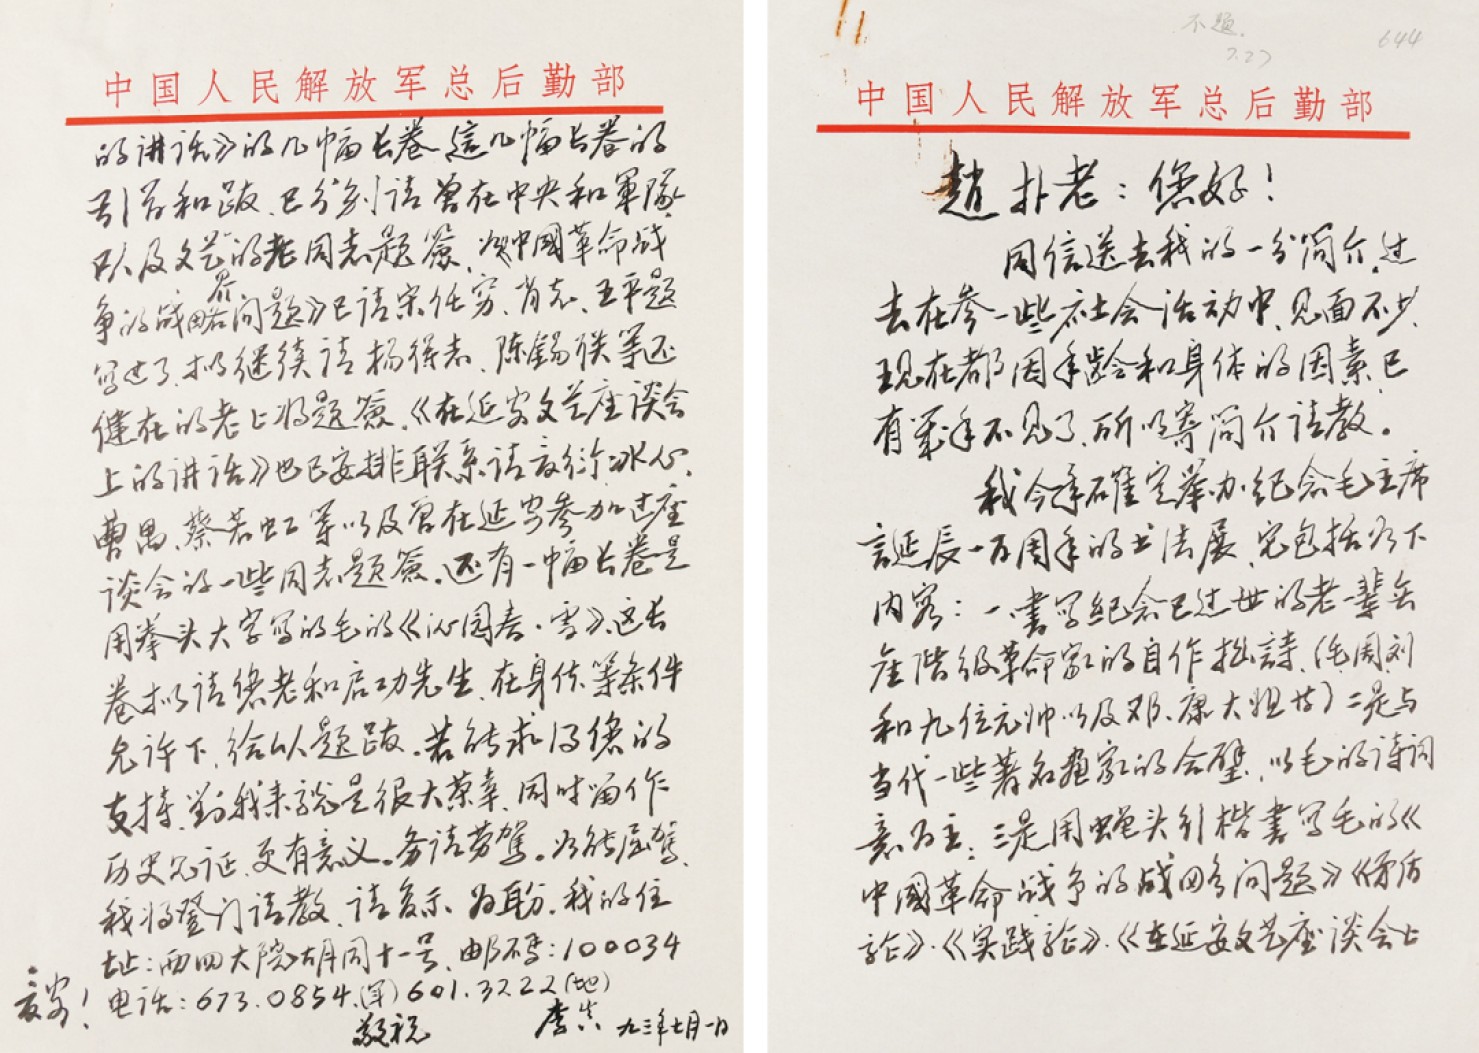 不题.
7.27
644
中国人民解放军总后勤部
趙朴老：您好！
同信送去我的一分简介，过
去在参一些社会活动中，见面不少，
现在都因年龄和身体的因素，已
有几年不见了，所以寄简介请教。
我今年確定举办纪念毛主席
誕辰一百周年的书法展，它包括以下
内容：一書写纪念已过世的老一辈无
产阶级革命家的自作拙詩，（毛周刘
和九位元帅以及邓、康大姐等）二是与
当代一些著名画家的合璧，以毛的诗词
意为主；三是用蝇头引楷書写毛的《
中國革命战争的战略问题》《矛盾
論》、《实践論》、《在延安文艺座谈会上
中国人民解放军总后勤部
的讲话》的几幅长卷，這几幅长卷的
引首和跋，已分别请曾在中央和軍隊
以及文艺界的老同志题簽，《中國革命战
争的战略问题》已请宋任穷、肖克、王平题
写过了，拟继续请杨得志、陈錫联等还
健在的老上将题簽，《在延安文艺座谈会
上的讲话》也已安排联系请夏衍、冰心、
曹禺、蔡若虹等以及曾在延安参加过座
谈会的一些同志题簽。还有一幅长卷是
用拳头大字写的毛的《沁园春·雪》，这长
卷拟请您老和启功先生，在身体等条件
允许下，给以题跋。若能求得您的
支持，對我来說是很大荣幸，同时留作
历史见证，更有意义。务请劳駕。以能屈駕，
我将登门请教，请复示为盼，我的住
址：西四大院胡同十一号，邮码：100034
电话：673.0854.(军) 601.3222(地)
敬祝
安！
李真 九三年七月一日